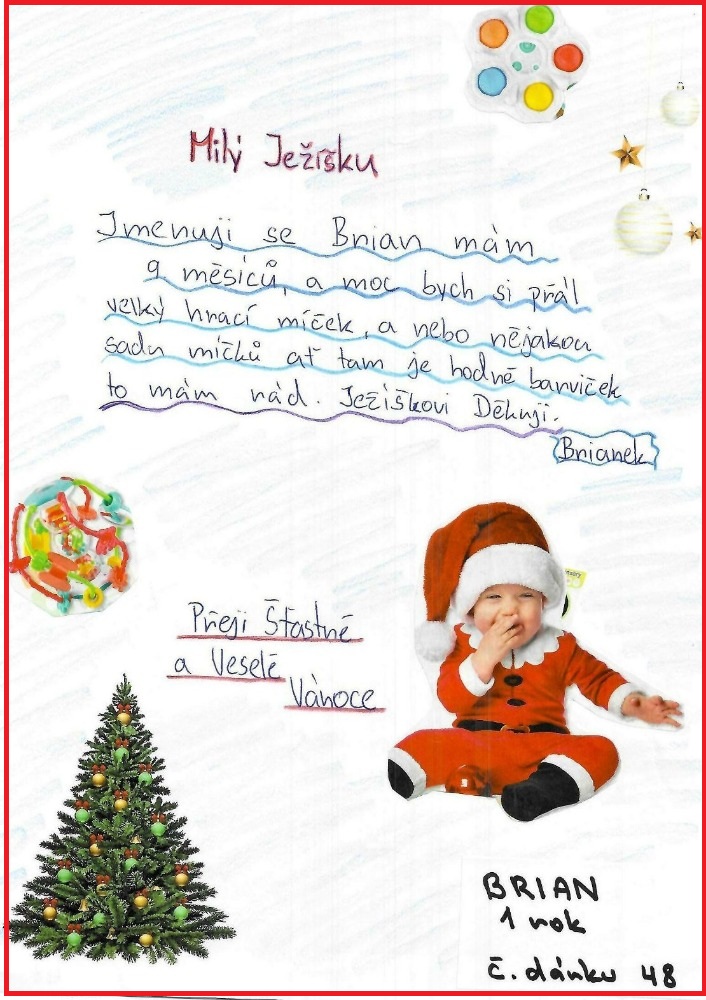 Milý Ježíšku
Jmenuji se Brian mám
9 měsíců, a moc bych si přál
velký hrací míček, a nebo nějakou
sadu míčků ať tam je hodně barviček
to mám rád. Ježíškovi Děkuji.
Brianek
Přeji Šťastné
a Veselé
Vánoce
BRIAN
1 rok
č. dárku 48